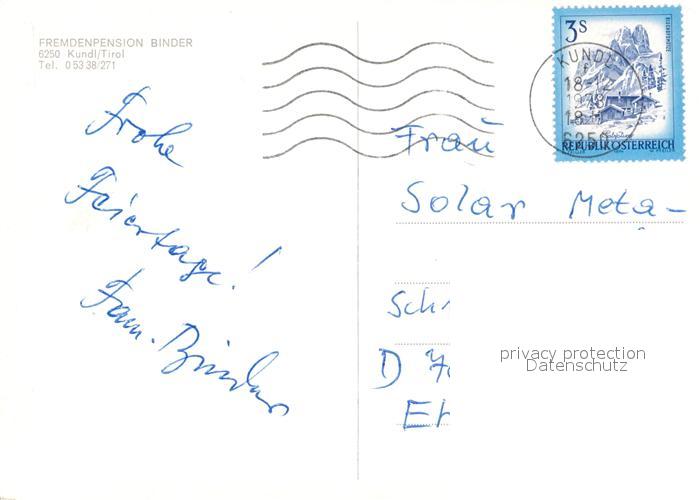 FREMDENPENSION BINDER
6250 Kundl/Tirol
Tel. 0 53 38/271
Frohe
Feiertage!
Fam. Binder
3S
KUNDL
18-12
1978
18-
6250
REPUBLIK ÖSTERREICH
Frau
Solar Meta-
Sch
D 7
privacy protection
Datenschutz